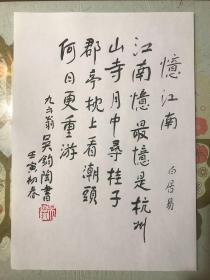 憶江南
白居易
江南憶最憶是杭州
山寺月中尋桂子
郡亭枕上看潮頭
何日更重游
九六翁吳鈞陶書
壬寅初春